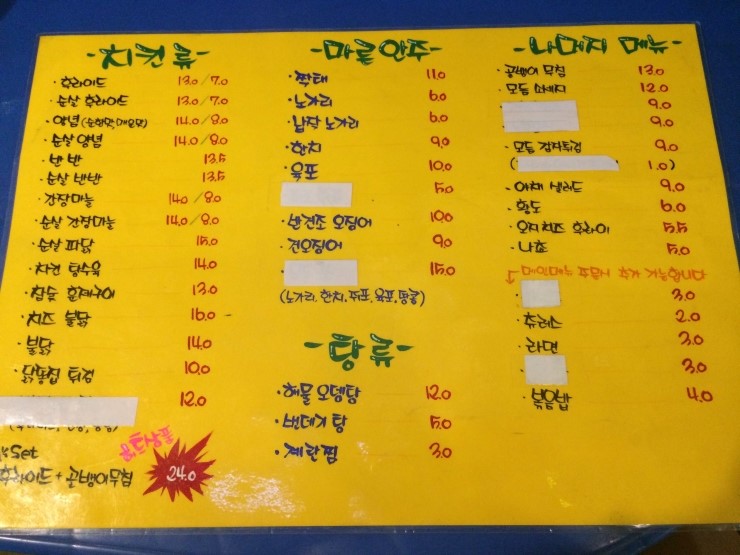 -치킨 류-
· 후라이드 13.0/7.0
· 순살 후라이드 13.0/7.0
· 양념 (순한맛, 매운맛) 14.0/8.0
· 순살 양념 14.0/8.0
· 반 반 13.5
· 순살 반반 13.5
· 간장마늘 14.0/8.0
· 순살 간장마늘 14.0/8.0
· 순살 파닭 15.0
· 치킨 탕수육 14.0
· 찹쌀 훈제구이 13.0
· 치즈 불닭 16.0
· 불닭 14.0
· 닭똥집 튀김 10.0
12.0
%Set
후라이드 + 골뱅이무침 24.0
-마른안주-
· 짝태 11.0
· 노가리 6.0
· 납작 노가리 6.0
· 한치 9.0
· 육포 10.0
5.0
· 반건조 오징어 10.0
· 건오징어 9.0
· 15.0
(노가리, 한치, 쥐포, 육포, 땅콩)
-탕류-
· 해물 오뎅탕 12.0
· 번데기 탕 5.0
· 계란찜 3.0
-나머지 메뉴-
· 골뱅이 무침 13.0
· 모듬 소세지 12.0
9.0
9.0
· 모듬 감자튀김 9.0
( 1.0)
· 야채 샐러드 9.0
· 황도 6.0
· 오지치즈 후라이 5.5
· 나쵸 5.0
메인메뉴 주문시 추가 가능합니다
· 3.0
· 츄러스 2.0
· 라면 3.0
· 3.0
· 볶음밥 4.0